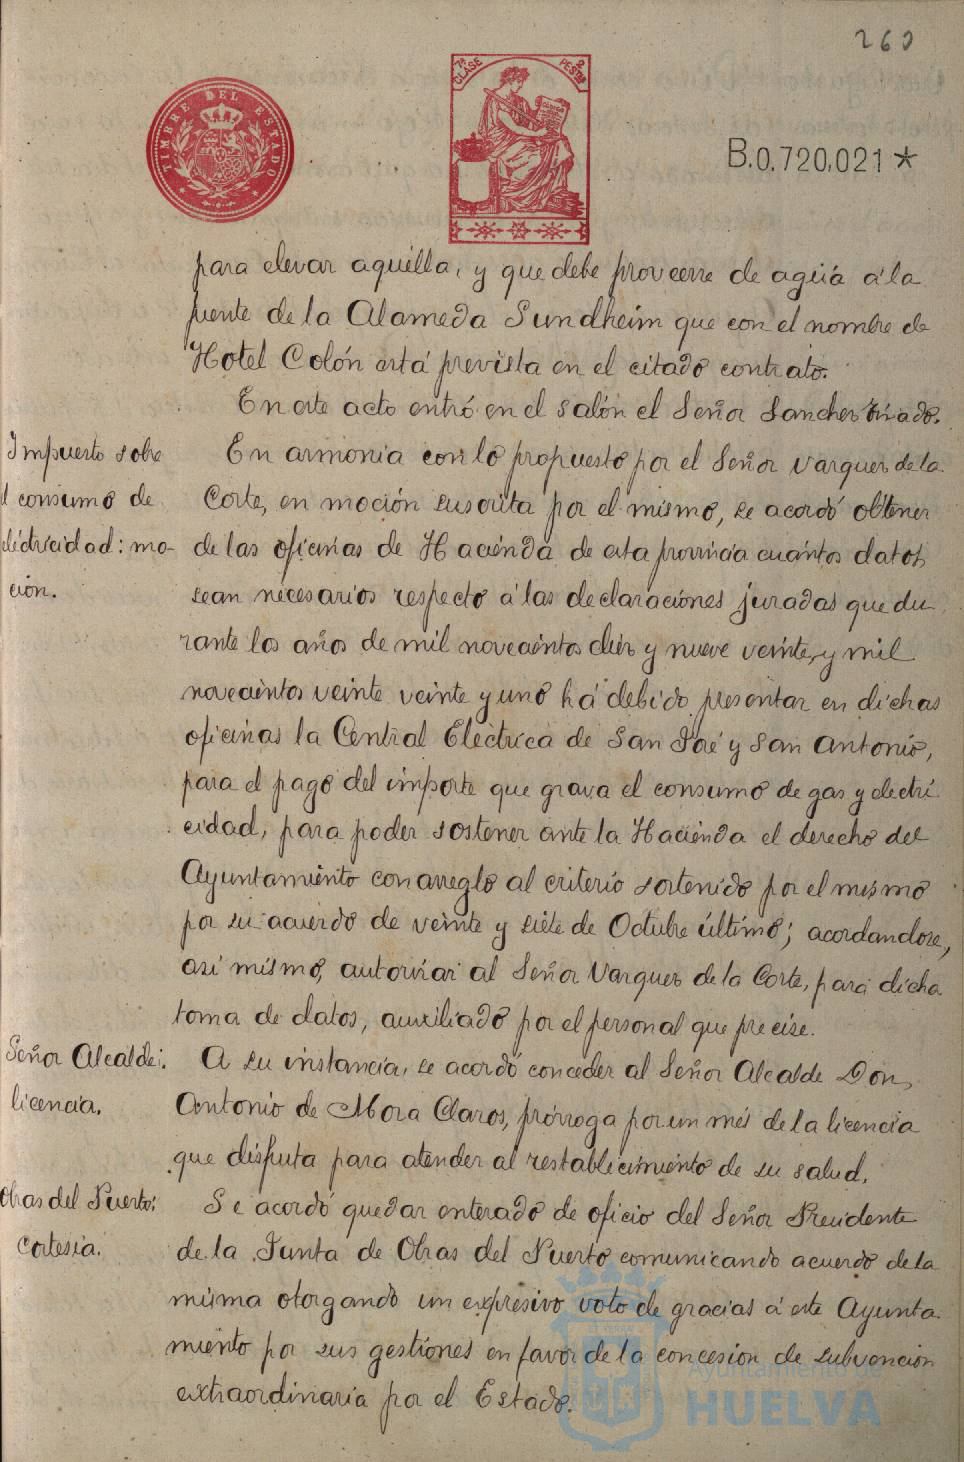 260
TIMBRE DEL ESTADO
7ª CLASE
2 PESTAS
B.0.720,021 *
para elevar aquella, y que debe proveerse de agua á la
fuente de la Alameda Sundheim que con el nombre de
Hotel Colón está prevista en el citado contrato.
En este acto entró en el salón el Señor Sanchez
Impuesto sobre
l consumo de
electricidad: mo-
ción.
En armonia con lo propuesto por el Señor Varquez de la
Corte, en moción suscrita por el mismo, se acordó obtener
de las oficinas de Hacienda de esta provincia cuantos datos
sean necesarios respecto á las declaraciones juradas que du
rante los años de mil novecientos diez y nueve veinte, y mil
novecientos veinte veinte y uno há debido presentar en dichas
oficinas la Central Eléctrica de San José y San Antonio,
para el pago del importe que grava el consumo de gas y electri
cidad, para poder sostener ante la Hacienda el derecho del
Ayuntamiento con arreglo al criterio sostenido por el mismo
por su acuerdo de veinte y siete de Octubre último; acordandose,
asi mismo, autorizar al Señor Varquez de la Corte, para dicha
toma de datos, auxiliado por el personal que precise.
Señor Alcalde:
licencia.
A su instancia, se acordó conceder al Señor Alcalde Don
Antonio de Mora Claros, prórroga por un més de la licencia
que disfruta para atender al restablecimiento de su salud.
Obras del Puerto:
Cortesia.
Se acordó quedar enterado de oficio del Señor Presidente
de la Junta de Obras del Puerto comunicando acuerdo de la
misma otorgando un expresivo voto de gracias á este Ayunta-
miento por sus gestiones en favor de la concesion de subvencion
extraordinaria por el Estado.
Ayuntamiento de
HUELVA